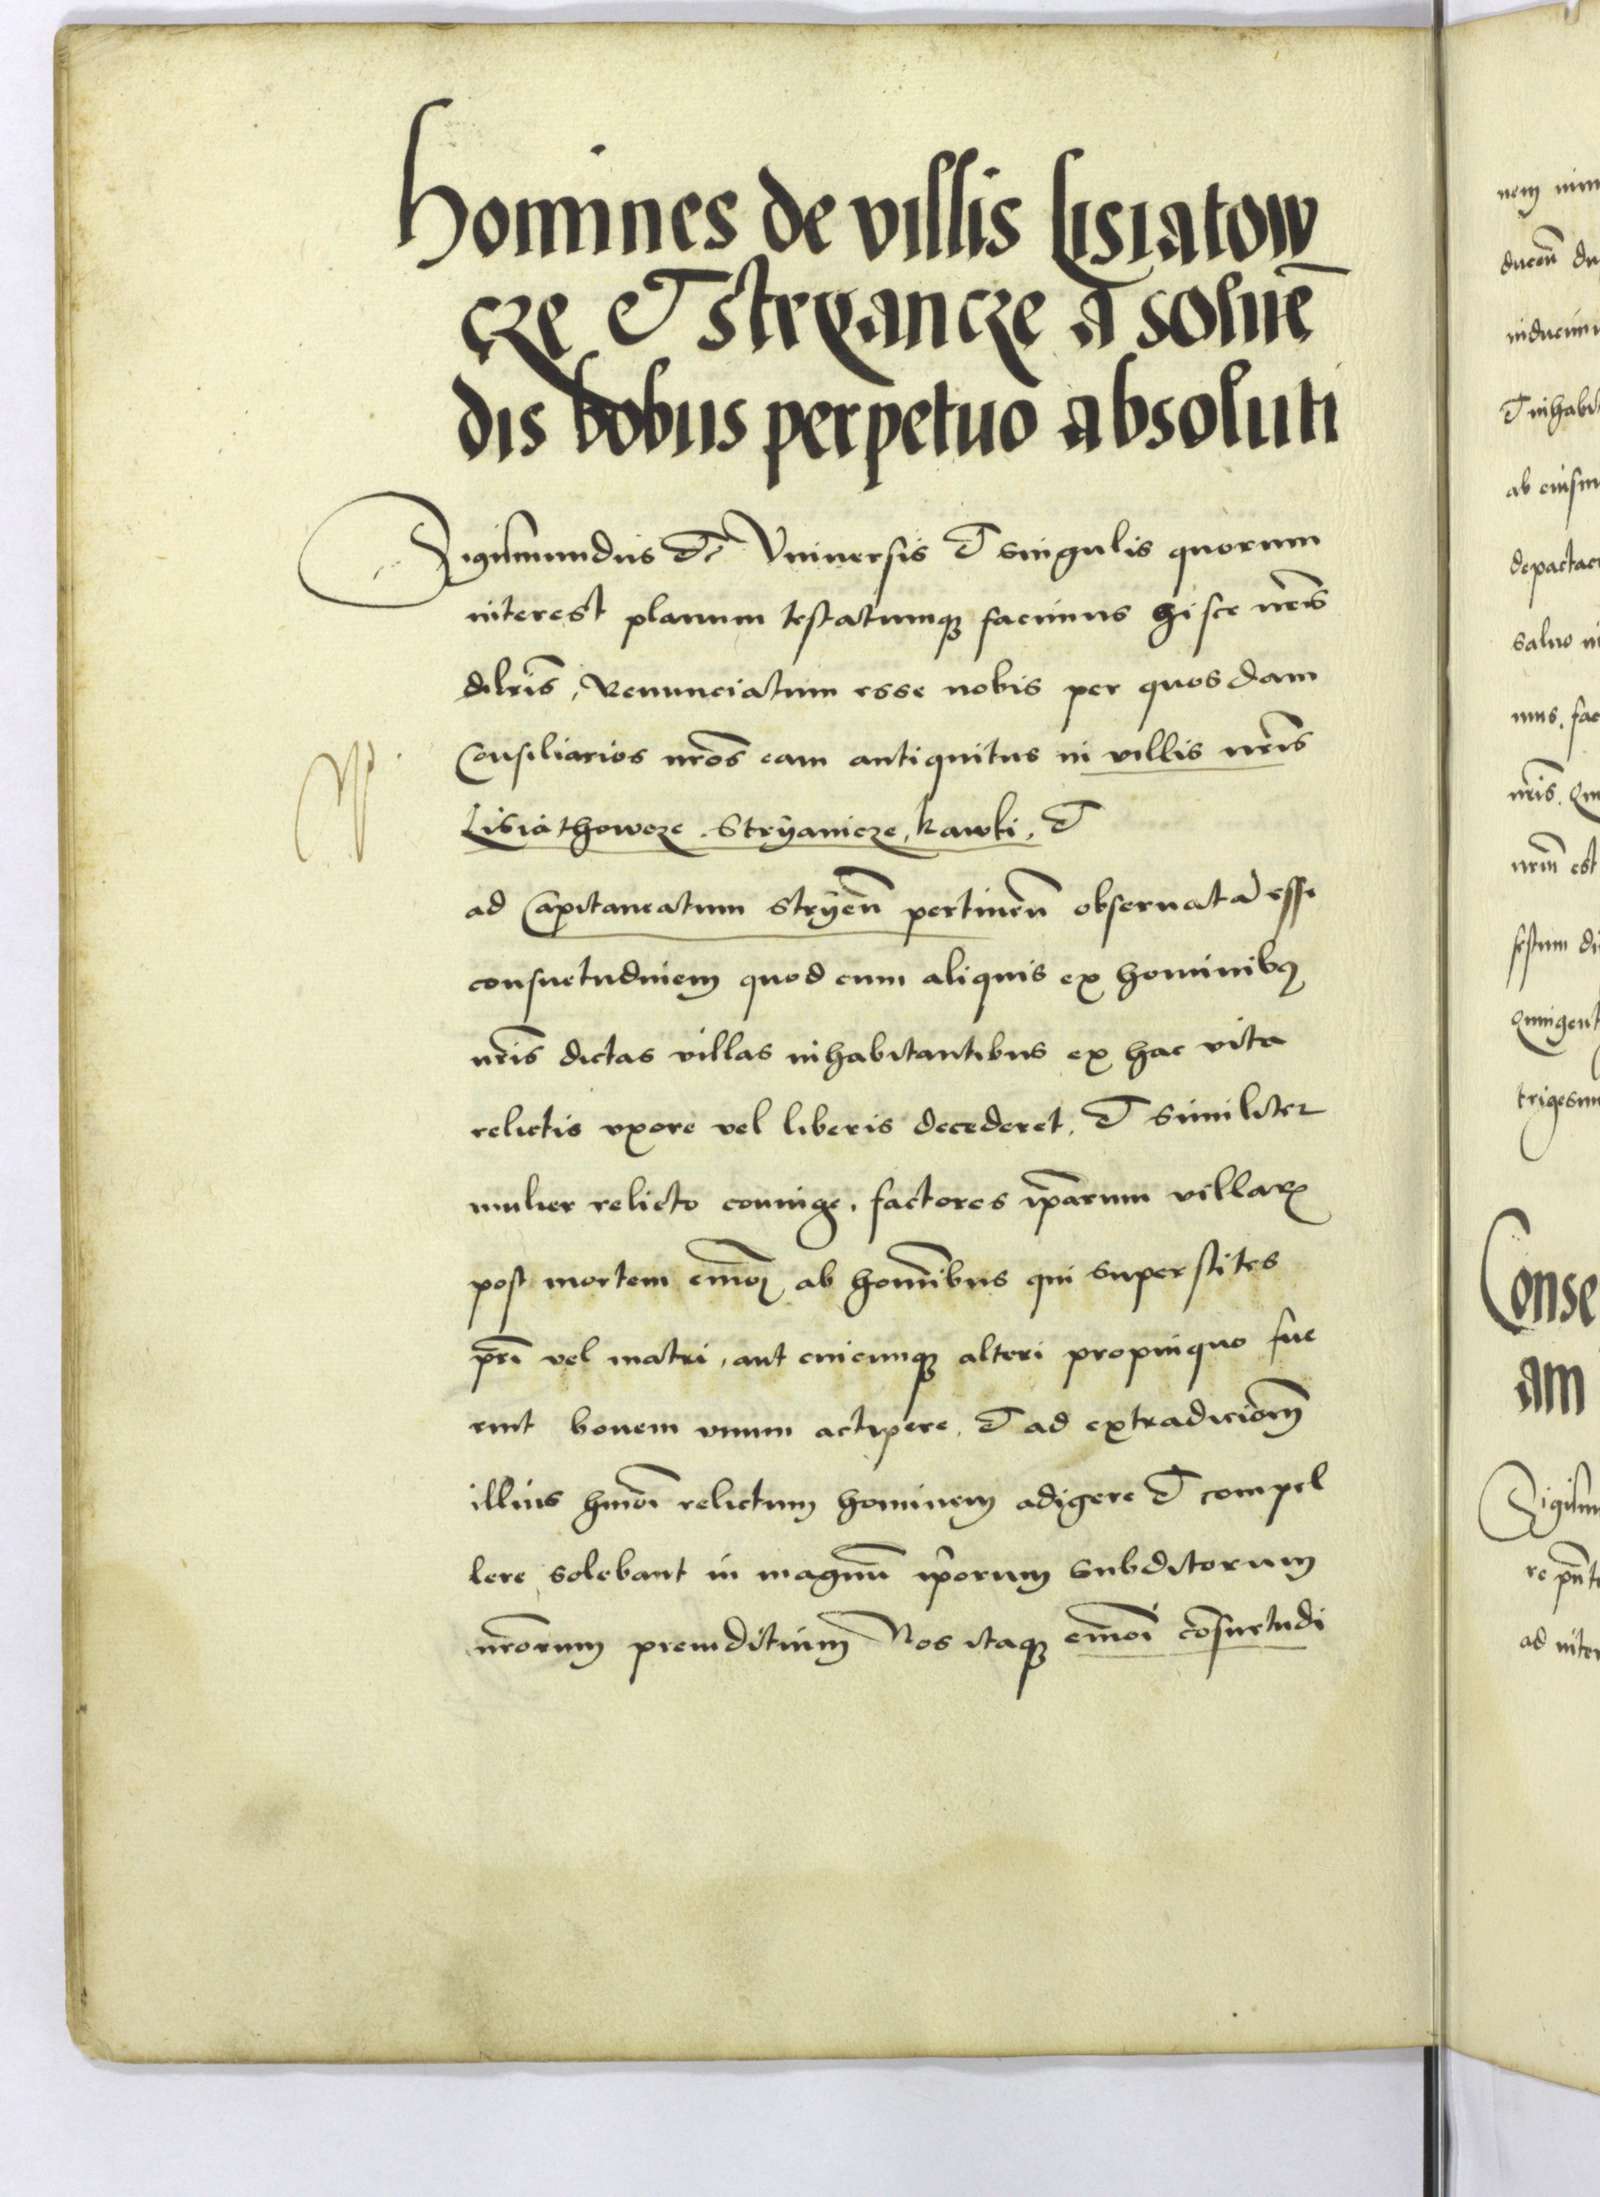 Homines de villis Lisiatow
cze et stryancze a soluē
dis bobus perpetuo absoluti
Sigismundus etc Vniuersis et singulis quorum
interest planum testatumq facimus hisce nr̄is
dilrīs, Renunciatum esse nobis per quosdam
Consiliarios nr̄os eam antiquitus in villis nr̄is
Lisiathowcze. Stryanicze, kawki, et
ad Capitaneatum Stryen̄ pertinen̄ obseruatā esse
consuetudinem quod cum aliquis ex hominibꝰ
nr̄is dictas villas inhabitantibus ex hac vita
relictis vxore vel liberis decederet, et similiter
mulier relicto coniuge, factores ip̄arum villarꝝ
post mortem eiūmoi ab homībus qui superstites
pr̄i vel matri, aut cuicunq alteri propinquo fue
rint bouem vnum accipere, et ad extradicionē
illius hmōi relictum hominem adigere et compel
lere solebant in magnū ip̄orum subditorum
nr̄orum preiuditium Nos itaq eiūmoi cōsuetudi
nem
ducen̄
et inhabi
ab eius
depactac
saluo
mus, fac
nr̄is.
nr̄m est
festum
Quingent
trigesim
Conse
am
Sigism
ad inter